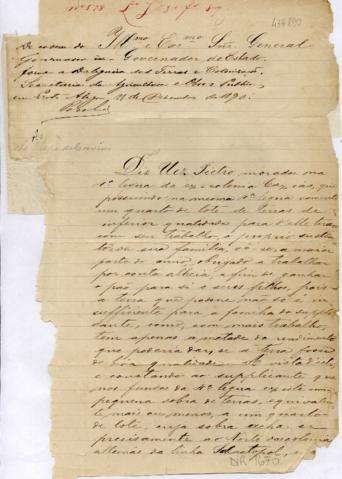 Nº 578
Illmo e Exmo Snr. General
De ordem do
Governador do Estado.
Governador
a Delegacia das Terras e Colonisação.
Secretaria da Agricultura e Obras Publicas,
em Porto Alegre 11 de Dezembro de 1890.
Diz Uez Pietro, morador na
4ª legua da ex colonia Caxias, que
possuindo na mesma 4ª legua somente
um quarto de lote de terras de
inferior qualidade para d'elle tirar
com seu trabalho, o susten-
to de sua familia, vê-se, a maior
parte do anno, obrigado a trabalhar
por conta alheia, a fim de ganhar
o pão para si e seus filhos, pois
a terra que possue não só é in-
sufficiente para a familia do suppli-
cante, como, com mais trabalho,
tem apenas a metade do rendimento
que poderia dar, se a terra fosse
de boa qualidade. A vista d'isto,
e constando ao supplicante que
nos fundos da 4ª legua existe uma
pequena sobra de terras, equivalen-
te, mais ou menos, a um quarto
de lote, cuja sobra acha-se
precisamente ao Norte da colonia
allemã da linha Sebastopol, e
DR 1670